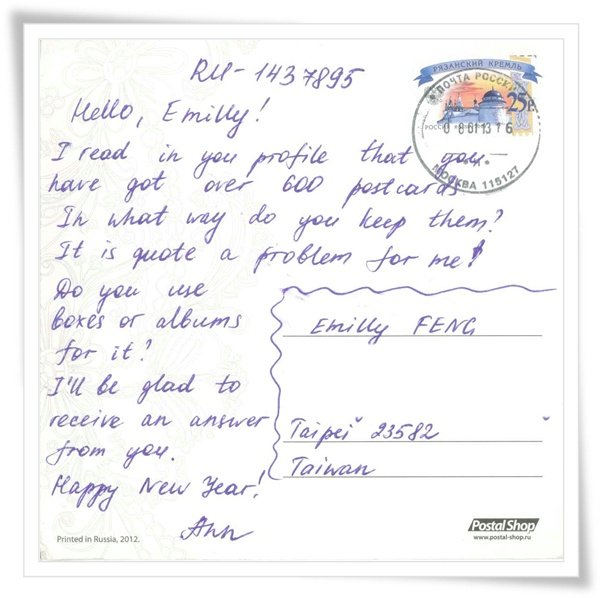 RU-1437895
РЯЗАНСКИЙ КРЕМЛЬ
ПОЧТА РОССИИ
25р
080113 16
МОСКВА 115127
Hello, Emilly!
I read in you profile that you
have got over 600 postcards
In what way do you keep them?
It is quote a problem for me!
Do you use
boxes or albums
for it?
I'll be glad to
receive an answer
from you.
Happy New Year!
Ann
Emilly FENG
Taipei 23582
Taiwan
Printed in Russia, 2012.
Postal Shop
www.postal-shop.ru